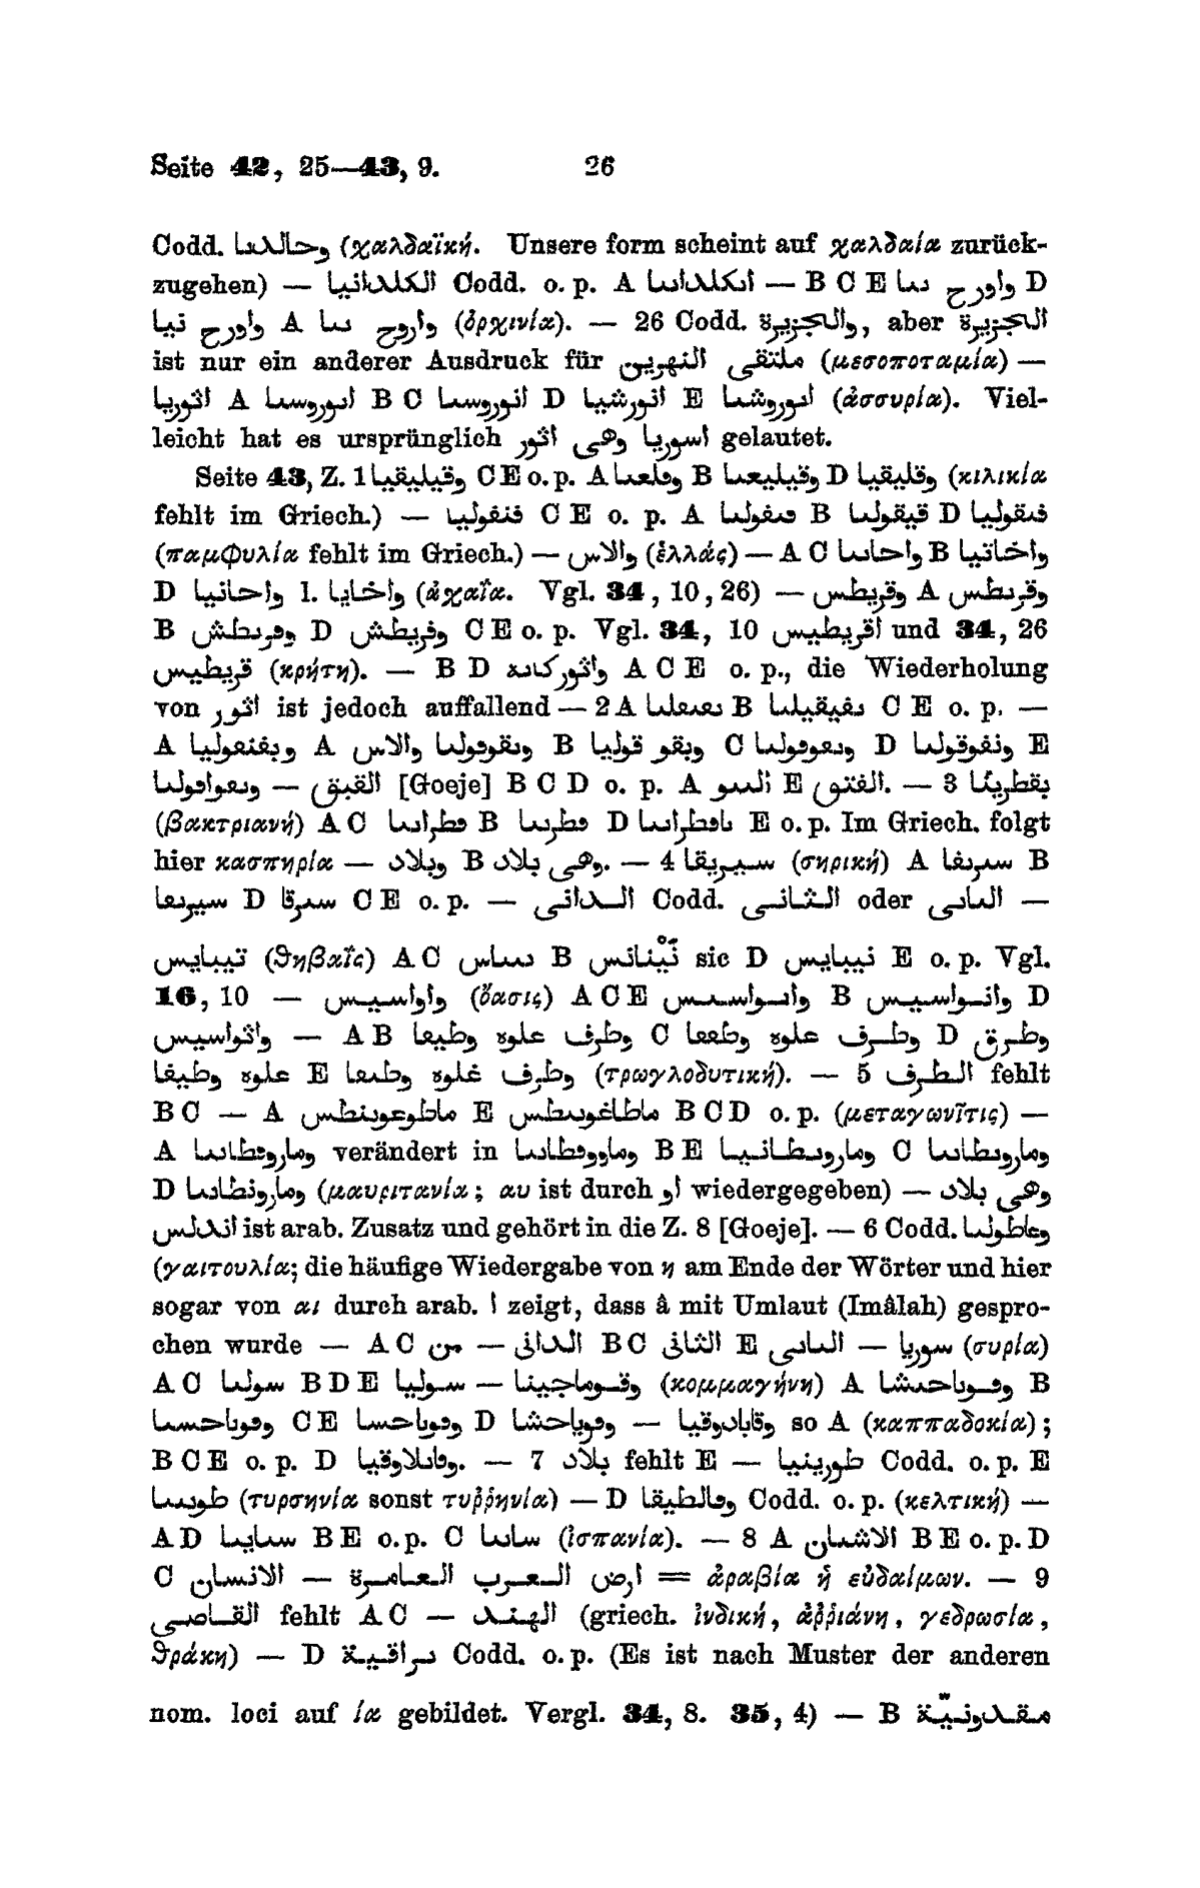 Seite 42, 25—43, 9. 26
Codd. وحالدىا (χαλδαϊκή. Unsere form scheint auf χαλδαία zurück-
zugehen) — الكلدانيا Codd. o. p. A انكلداىىا — B C E واورح ىىا D
واورح نيا A واروح ىىا (ὀρχινία). — 26 Codd. والجزيرة, aber الجزيرة
ist nur ein anderer Ausdruck für ملتقى النهرين (μεσοποταμία) —
اثوريا A اىوروسىا B C انوروسىا D انورشيا E اىوروشىا (ἀσσυρία). Viel-
leicht hat es ursprünglich اسوريا وهى اثور gelautet.
Seite 43, Z. 1 وقيليقيا C E o. p. A وڡلعىا B وقيليعىا D وقليقيا (κιλικία
fehlt im Griech.) — فنفوليا C E o. p. A ڡىڡولىا B قيقولىا D فىقوليا
(παμφυλία fehlt im Griech.) — والاس (ἑλλάς) — A C واحاىىا B واخاتيا
D واحانيا l. واخايا (ἀχαΐα. Vgl. 34, 10, 26) — وقريطس A وقرىطس
B وڡرىطش D وفريطش C E o. p. Vgl. 34, 10 اقريطيس und 34, 26
قريطيس (κρήτη). — B D واثوركاىه A C E o. p., die Wiederholung
von اثور ist jedoch auffallend — 2 A ىعىعلىا B ىفيقيلىا C E o. p. —
A وبفنعوليا A وىقوڡولىا والاس B وبقو قوليا C وىعوڡولىا D ونفوقولىا E
وىعواڡولىا — القبق [Goeje] B C D o. p. A الىىو E الفتو. — 3 بقطريثا
(βακτριανή) A C ڡطراىىا B ڡطرىىا D ىاڡطراىىا E o. p. Im Griech. folgt
hier κασπηρία — وبلاد B وهى بلاد. — 4 سيريقا (σηρική) A سىرىڡا B
سيرىعا D سىرقا C E o. p. — الدانى Codd. الثانى oder الىاىى —
تيبايس (θηβαΐς) A C ىىىاىس B نيْنانس sic D نيبايس E o. p. Vgl.
16, 10 — واواسيس (ὄασις) A C E واىواسىس B وانواسيس D
واثواسيس — A B وطرف علوه وطيعا C وطرف علوه وطععا D وطرق
علوه وطيفا E وطرف غلوه وطىعا (τρωγλοδυτική). — 5 الطرف fehlt
B C — A ماطوعوىىطس E ماطاغوىىطس B C D o. p. (μεταγωνῖτις) —
A وماروطاىىا verändert in وماووطاىىا B E وماروىطانيا C وماروىطاىىا
D وماروىطاىىا (μαυριτανία; αυ ist durch او wiedergegeben) — وهى بلاد
اندلس ist arab. Zusatz und gehört in die Z. 8 [Goeje]. — 6 Codd. وعاطولىا
(γαιτουλία; die häufige Wiedergabe von η am Ende der Wörter und hier
sogar von αι durch arab. ا zeigt, dass â mit Umlaut (Imâlah) gespro-
chen wurde — A C الدانى — من B C الثانى E الىاىى — سوريا (συρία)
A C سولىا B D E سوليا — وقوماجينا (κομμαγήνη) A وڡوىاحىشا B
وڡوىاحسىا C E وڡوىاحسا D وڡوياحشا — وقابادوقيا so A (καππαδοκία);
B C E o. p. D وڡاىلاوقيا. — 7 بلاد fehlt E — طورينيا Codd. o. p. E
طوىىىا (τυρσηνία sonst τυῤῥηνία) — D وڡالطيقا Codd. o. p. (κελτική) —
A D سىايىا B E o. p. C ساىىا (ἱσπανία). — 8 A الاشىان B E o. p. D
C الانسان — ارض العرب العامرة = ἀραβία ἡ εὐδαίμων. — 9
القاصى fehlt A C — الهند (griech. ἰνδική, ἀῤῥιάνη, γεδρωσία,
θράκη) — D ىراقية Codd. o. p. (Es ist nach Muster der anderen
nom. loci auf ία gebildet. Vergl. 34, 8. 35, 4) — B مقدونيّة